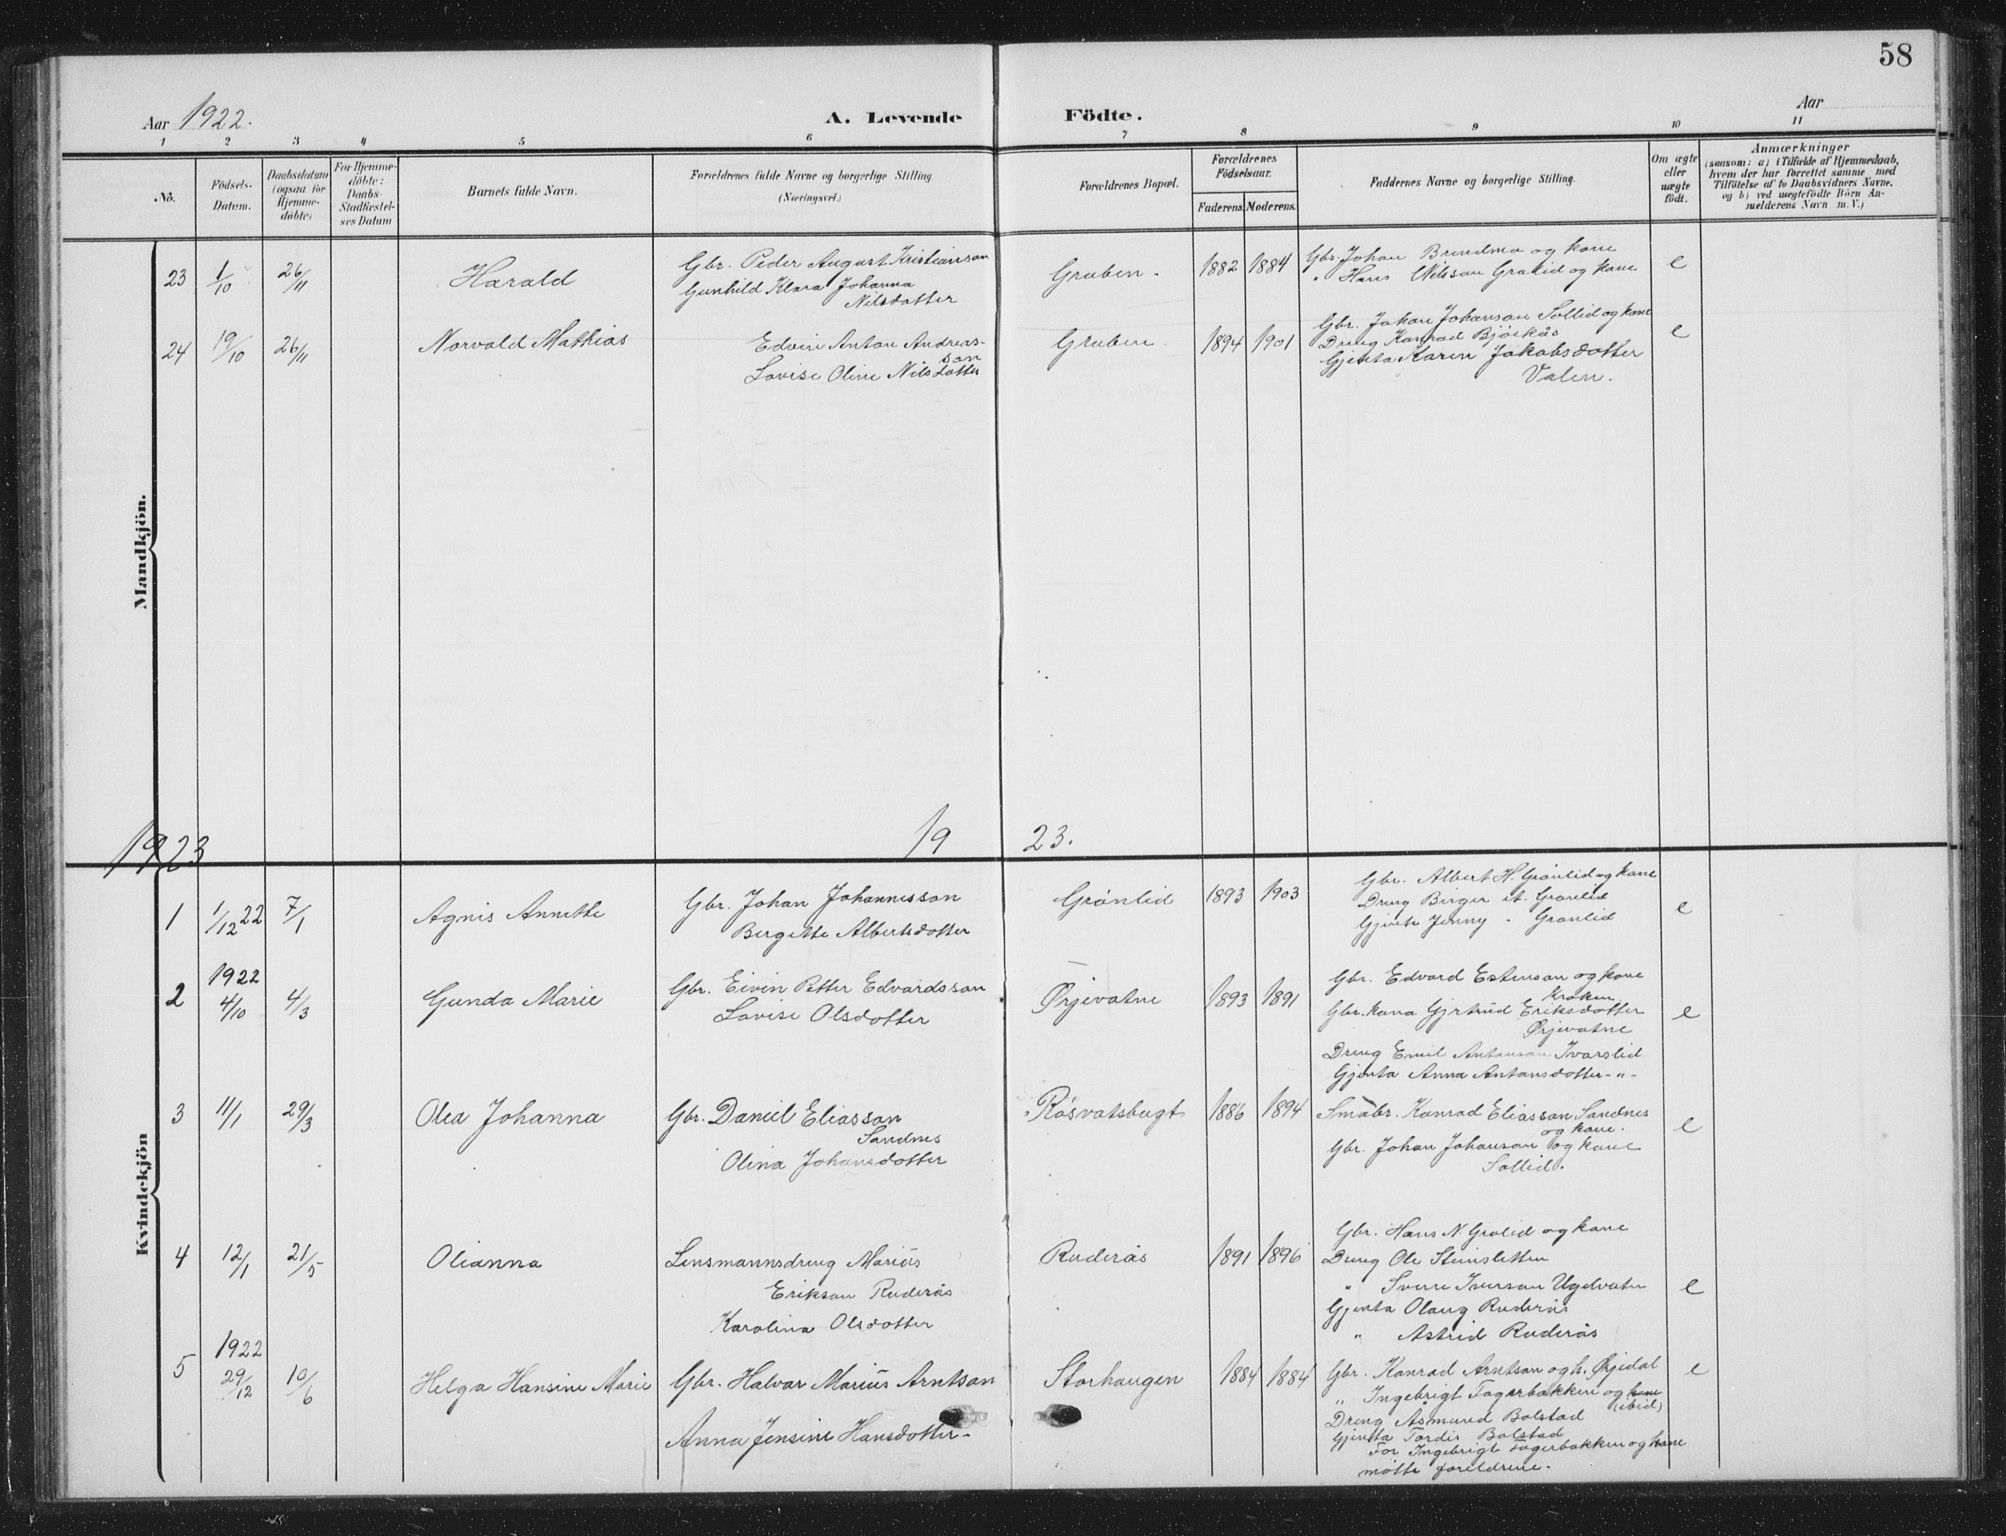 58
Aar 1922.
A. Levende Födte.
Aar
1 2 3 4 5 6 7 8 9 10 11
No.
Födsels-
Datum.
Daabsdatum
(ogsaa for
Hjemme-
döbte)
For Hjemme-
döbte:
Daabs-
Stadfæstel-
ses Datum
Barnets fulde Navn.
Forældrenes fulde Navne og borgerlige Stilling.
(Næringsvei.)
Forældrenes Bopæl.
Forældrenes
Födselsaar.
Faderens. Moderens.
Faddernes Navne og borgerlige Stilling.
Om ægte
eller
uægte
födt.
Anmærkninger
(saasom: a) i Tilfælde af Hjemmedaab,
hvem der har forrettet samme med
Tilföielse af to Daabsvidners Navne,
og b) ved uægtefödte Börn An-
melderens Navn m. V.)
Mandkjön.
23 1/10 26/11 Harald
Gbr. Peder August Kristianson
Gunhild Klara Johanna
Nilsdotter
Gruben.
1882 1884
Gbr. Johan Brendmo og kone
" Hans Nilsson Gralid og kone
e
24 19/10 26/11 Norvald Mathias
Edvin Anton Andreas-
son
Lovise Oline Nilsdotter
Gruben.
1894 1901
Gbr. Johan Johanson Sollid og kone
Dreng Konrad Bjørkås
Gjenta Karen Jakobsdotter
Valen.
e
1923
19 23.
Kvindekjön
1 1/12 22 7/1 Agnis Annette
Gbr. Johan Johannesson
Bergette Albertsdotter
Grönlid
1893 1903
Gbr. Albert H. Grönlid og kone
Dreng Birger A. Grönlid
Gjenta Jenny " Grönlid
e
2 1922
4/10 4/3 Gunda Marie
Gbr. Eivin Petter Edvardsson
Lovise Olsdotter
Ørjevatne
1893 1891
Gbr. Edvard Estenson og kone
Kroken
Gbr.kona Gjertrud Eriksdotter
Ørjevatne
Dreng Emil Antonson Ivarslid
Gjenta Anna Antonsdotter -"-
e
3 11/1 29/3 Olea Johanna
Gbr. Daniel Eliasson
Sandnes
Olina Johansdotter
Rösvatsbugt
1886 1894
Småbr. Konrad Eliasson Sandnes
og kone.
Gbr. Johan Johanson og kone
Sollid.
e
4 12/1 21/5 Olianna
Lensmannsdreng Marius
Erikson Ruderås
Karolina Olsdotter
Ruderås
1891 1896
Gbr. Hans N. Grolid og kone
Dreng Ole Steinsletten
" Sverre Iverson Ugelvatn
Gjenta Olaug Ruderås
" Astrid Ruderås
e
5 1922
29/12 10/6 Helga Hansine Marie
Gbr. Halvar Marius Arntson
Anna Jensine Hansdotter-
Storhaugen
1884 1884
Gbr. Konrad Arntson og h. Ørjedal
" Ingebrigt Fagerbakken og kone
(ibid)
Dreng Åsmund Bolstad
Gjenta Tordis Bolstad
For Ingebrigt Fagerbakken og kone
møtte foreldrene.
e